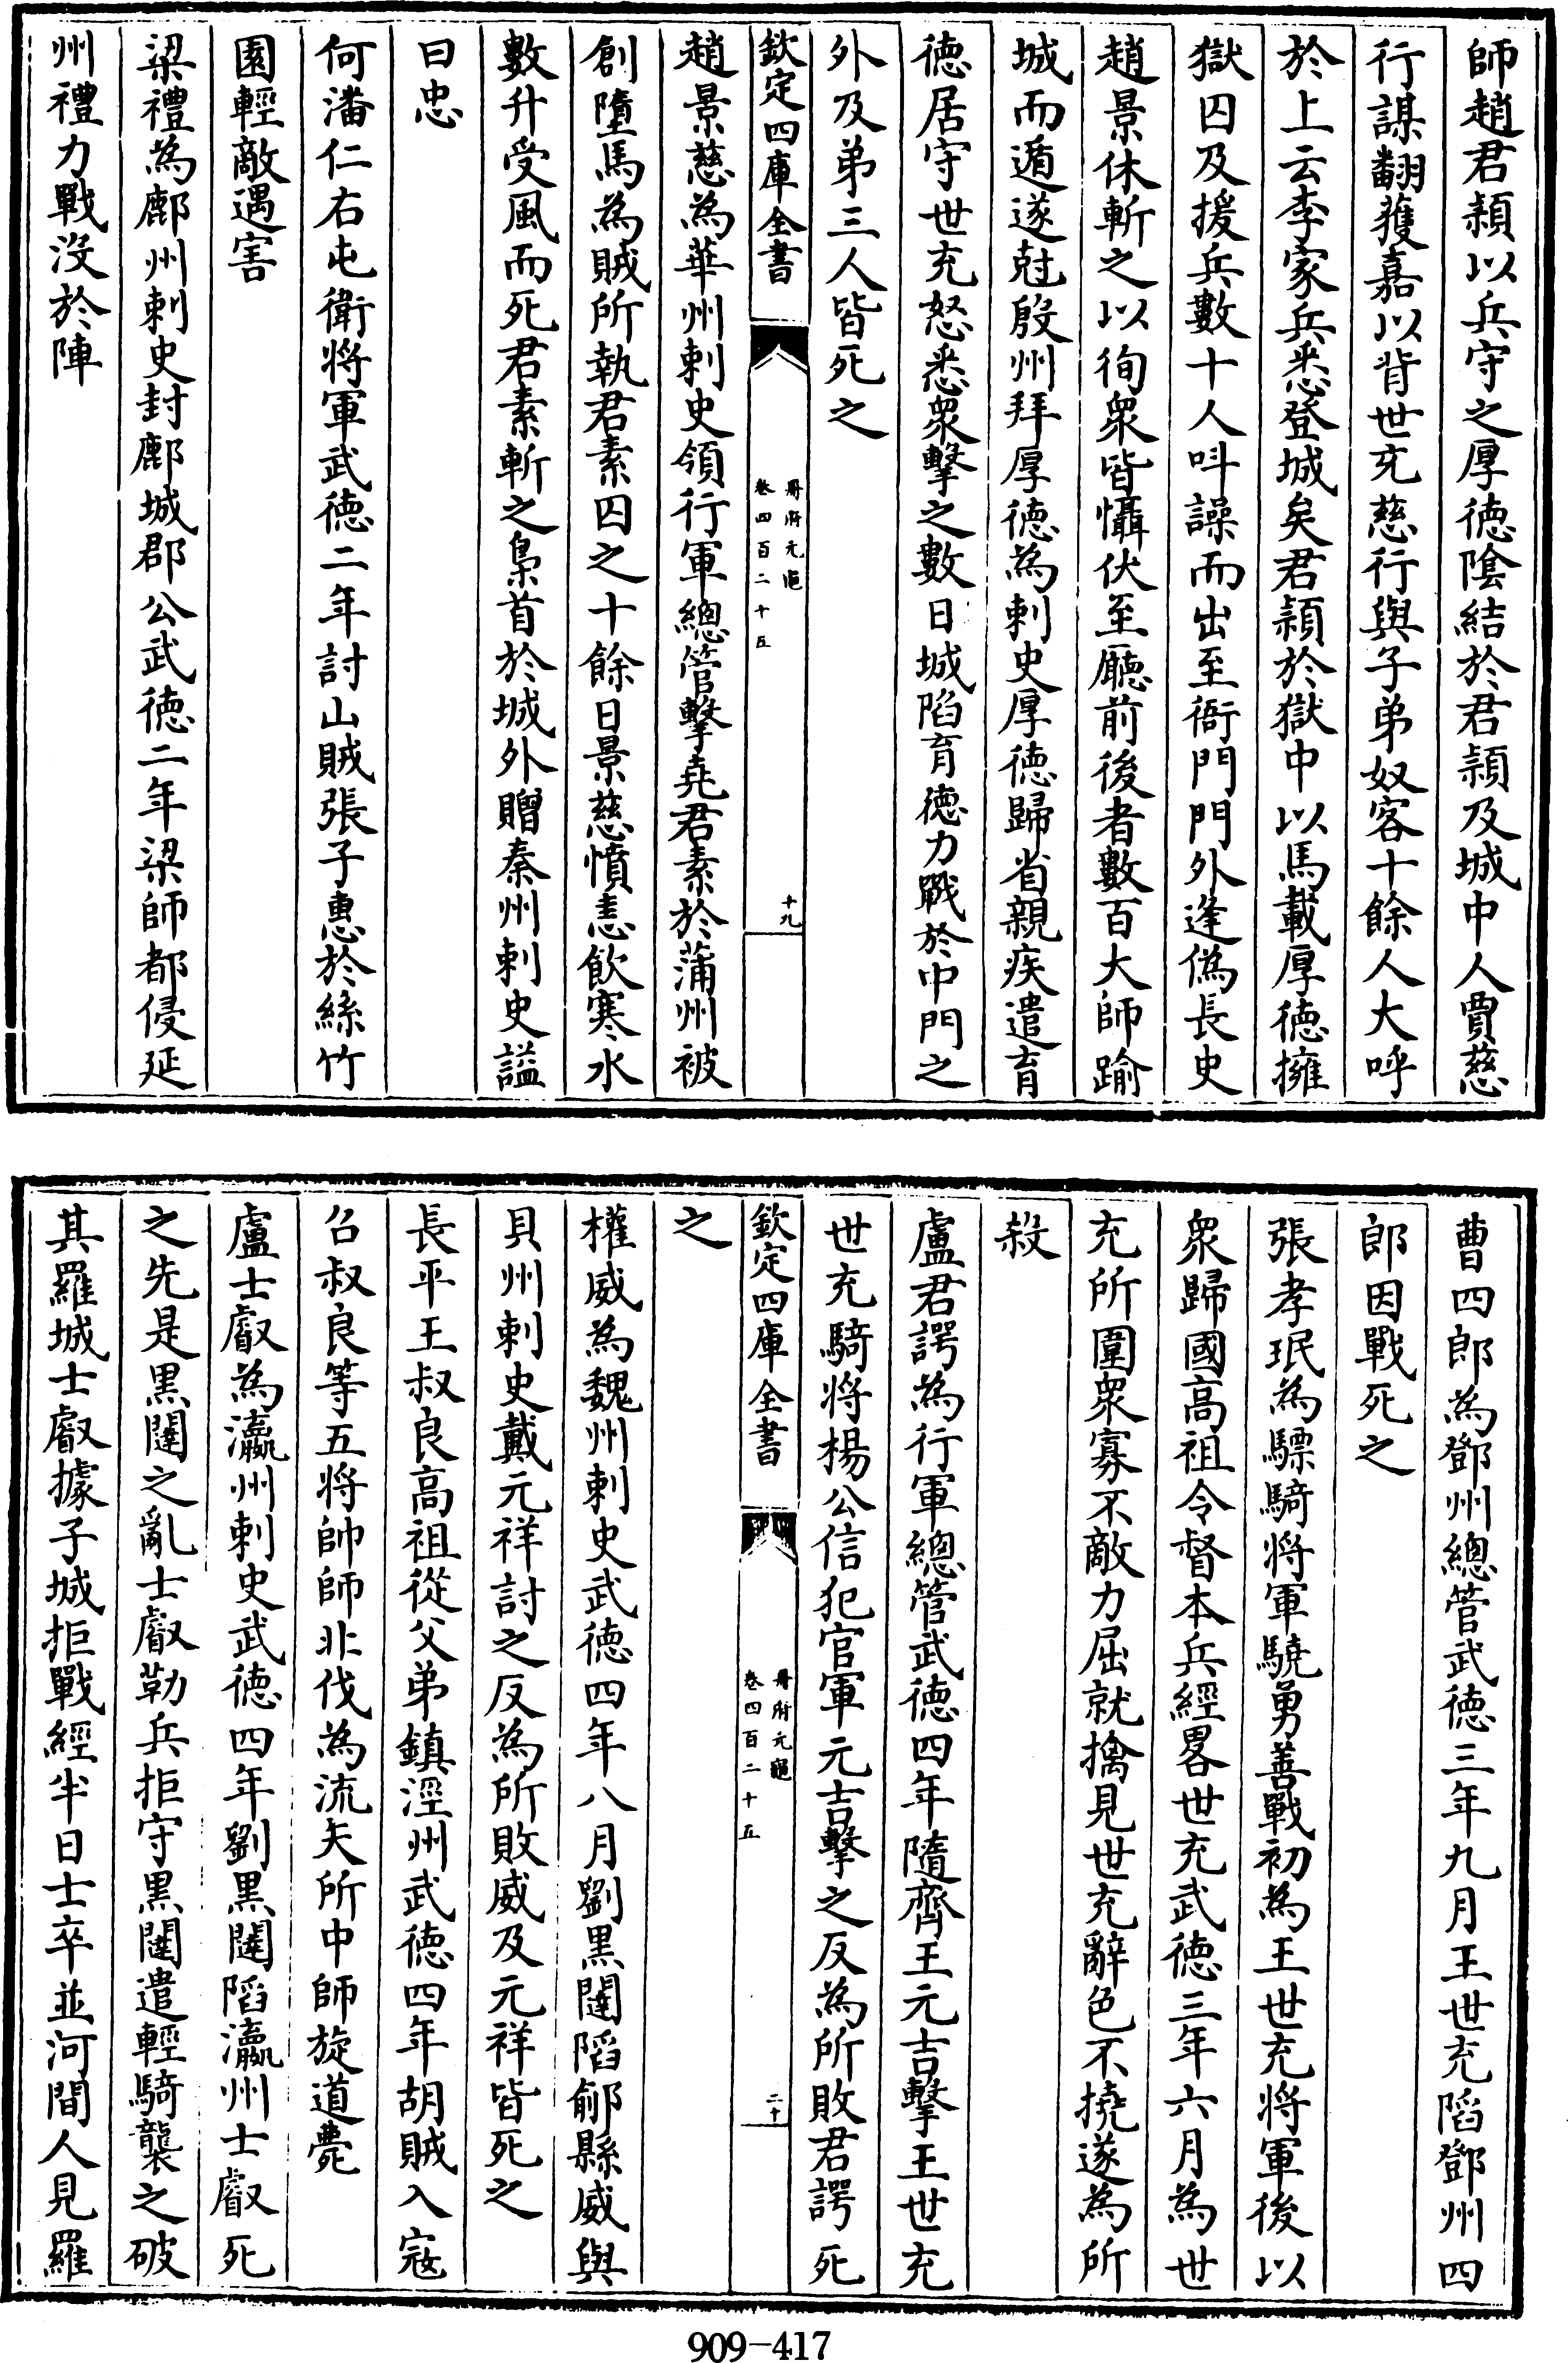 師趙君頴以兵守之厚徳陰結於君頴及城中人賈慈
行謀翻獲嘉以背世充慈行與子弟奴客十餘人大呼
於上云李家兵悉登城矣君頴於獄中以馬載厚徳擁
獄囚及援兵數十人呌譟而出至衙門門外逢偽長史
趙景休斬之以徇衆皆懾伏至廳前後者數百大師踰
城而遁遂尅殷州拜厚徳為刺史厚徳歸省親疾遣育
徳居守世充怒悉衆擊之數日城陷育徳力戰於中門之
外及弟三人皆死之
欽定四庫全書
冊府元龜
卷四百二十五
十九
趙景慈為華州刺史領行軍總管擊堯君素於蒲州被
創墮馬為賊所執君素囚之十餘日景慈憤恚飲寒水
數升受風而死君素斬之梟首於城外贈秦州刺史謚
曰忠
何潘仁右屯衛將軍武徳二年討山賊張子惠於絲竹
園輕敵遇害
梁禮為鄜州刺史封鄜城郡公武徳二年梁師都侵延
州禮力戰沒於陣
曹四郎為鄧州總管武徳三年九月王世充陷鄧州四
郎因戰死之
張孝珉為驃騎将軍驍勇善戰初為王世充将軍後以
衆歸國高祖令督本兵經畧世充武徳三年六月為世
充所圍衆寡不敵力屈就擒見世充辭色不撓遂為所
殺
盧君諤為行軍總管武徳四年隨齊王元吉擊王世充
世充騎将楊公信犯官軍元吉擊之反為所敗君諤死
欽定四庫全書
冊府元龜
卷四百二十五
二十
之
權威為魏州刺史武徳四年八月劉黒闥陷鄃縣威與
貝州刺史戴元祥討之反為所敗威及元祥皆死之
長平王叔良高祖從父弟鎮涇州武徳四年胡賊入寇
召叔良等五将帥師北伐為流矢所中師旋道薨
盧士叡為瀛州刺史武徳四年劉黒闥陷瀛州士叡死
之先是黒闥之亂士叡勒兵拒守黒闥遣輕騎襲之破
其羅城士叡據子城拒戰經半日士卒並河間人見羅
909-417